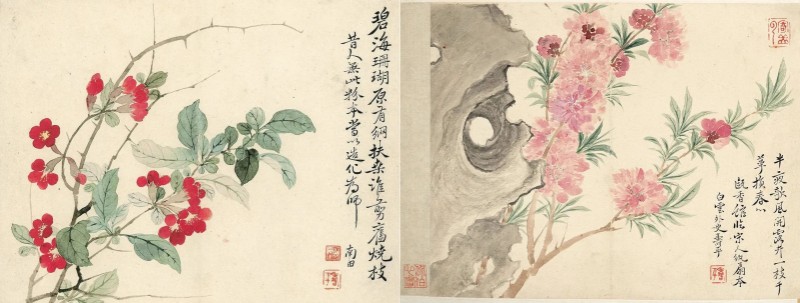 碧海珊瑚原有網扶桑誰剪舊燒枝
昔人無此粉本當以造化為師
南田
半夜歌風開露井一枝千
華擅春心
甌香館臨宋人紈扇本
白雲外史壽平